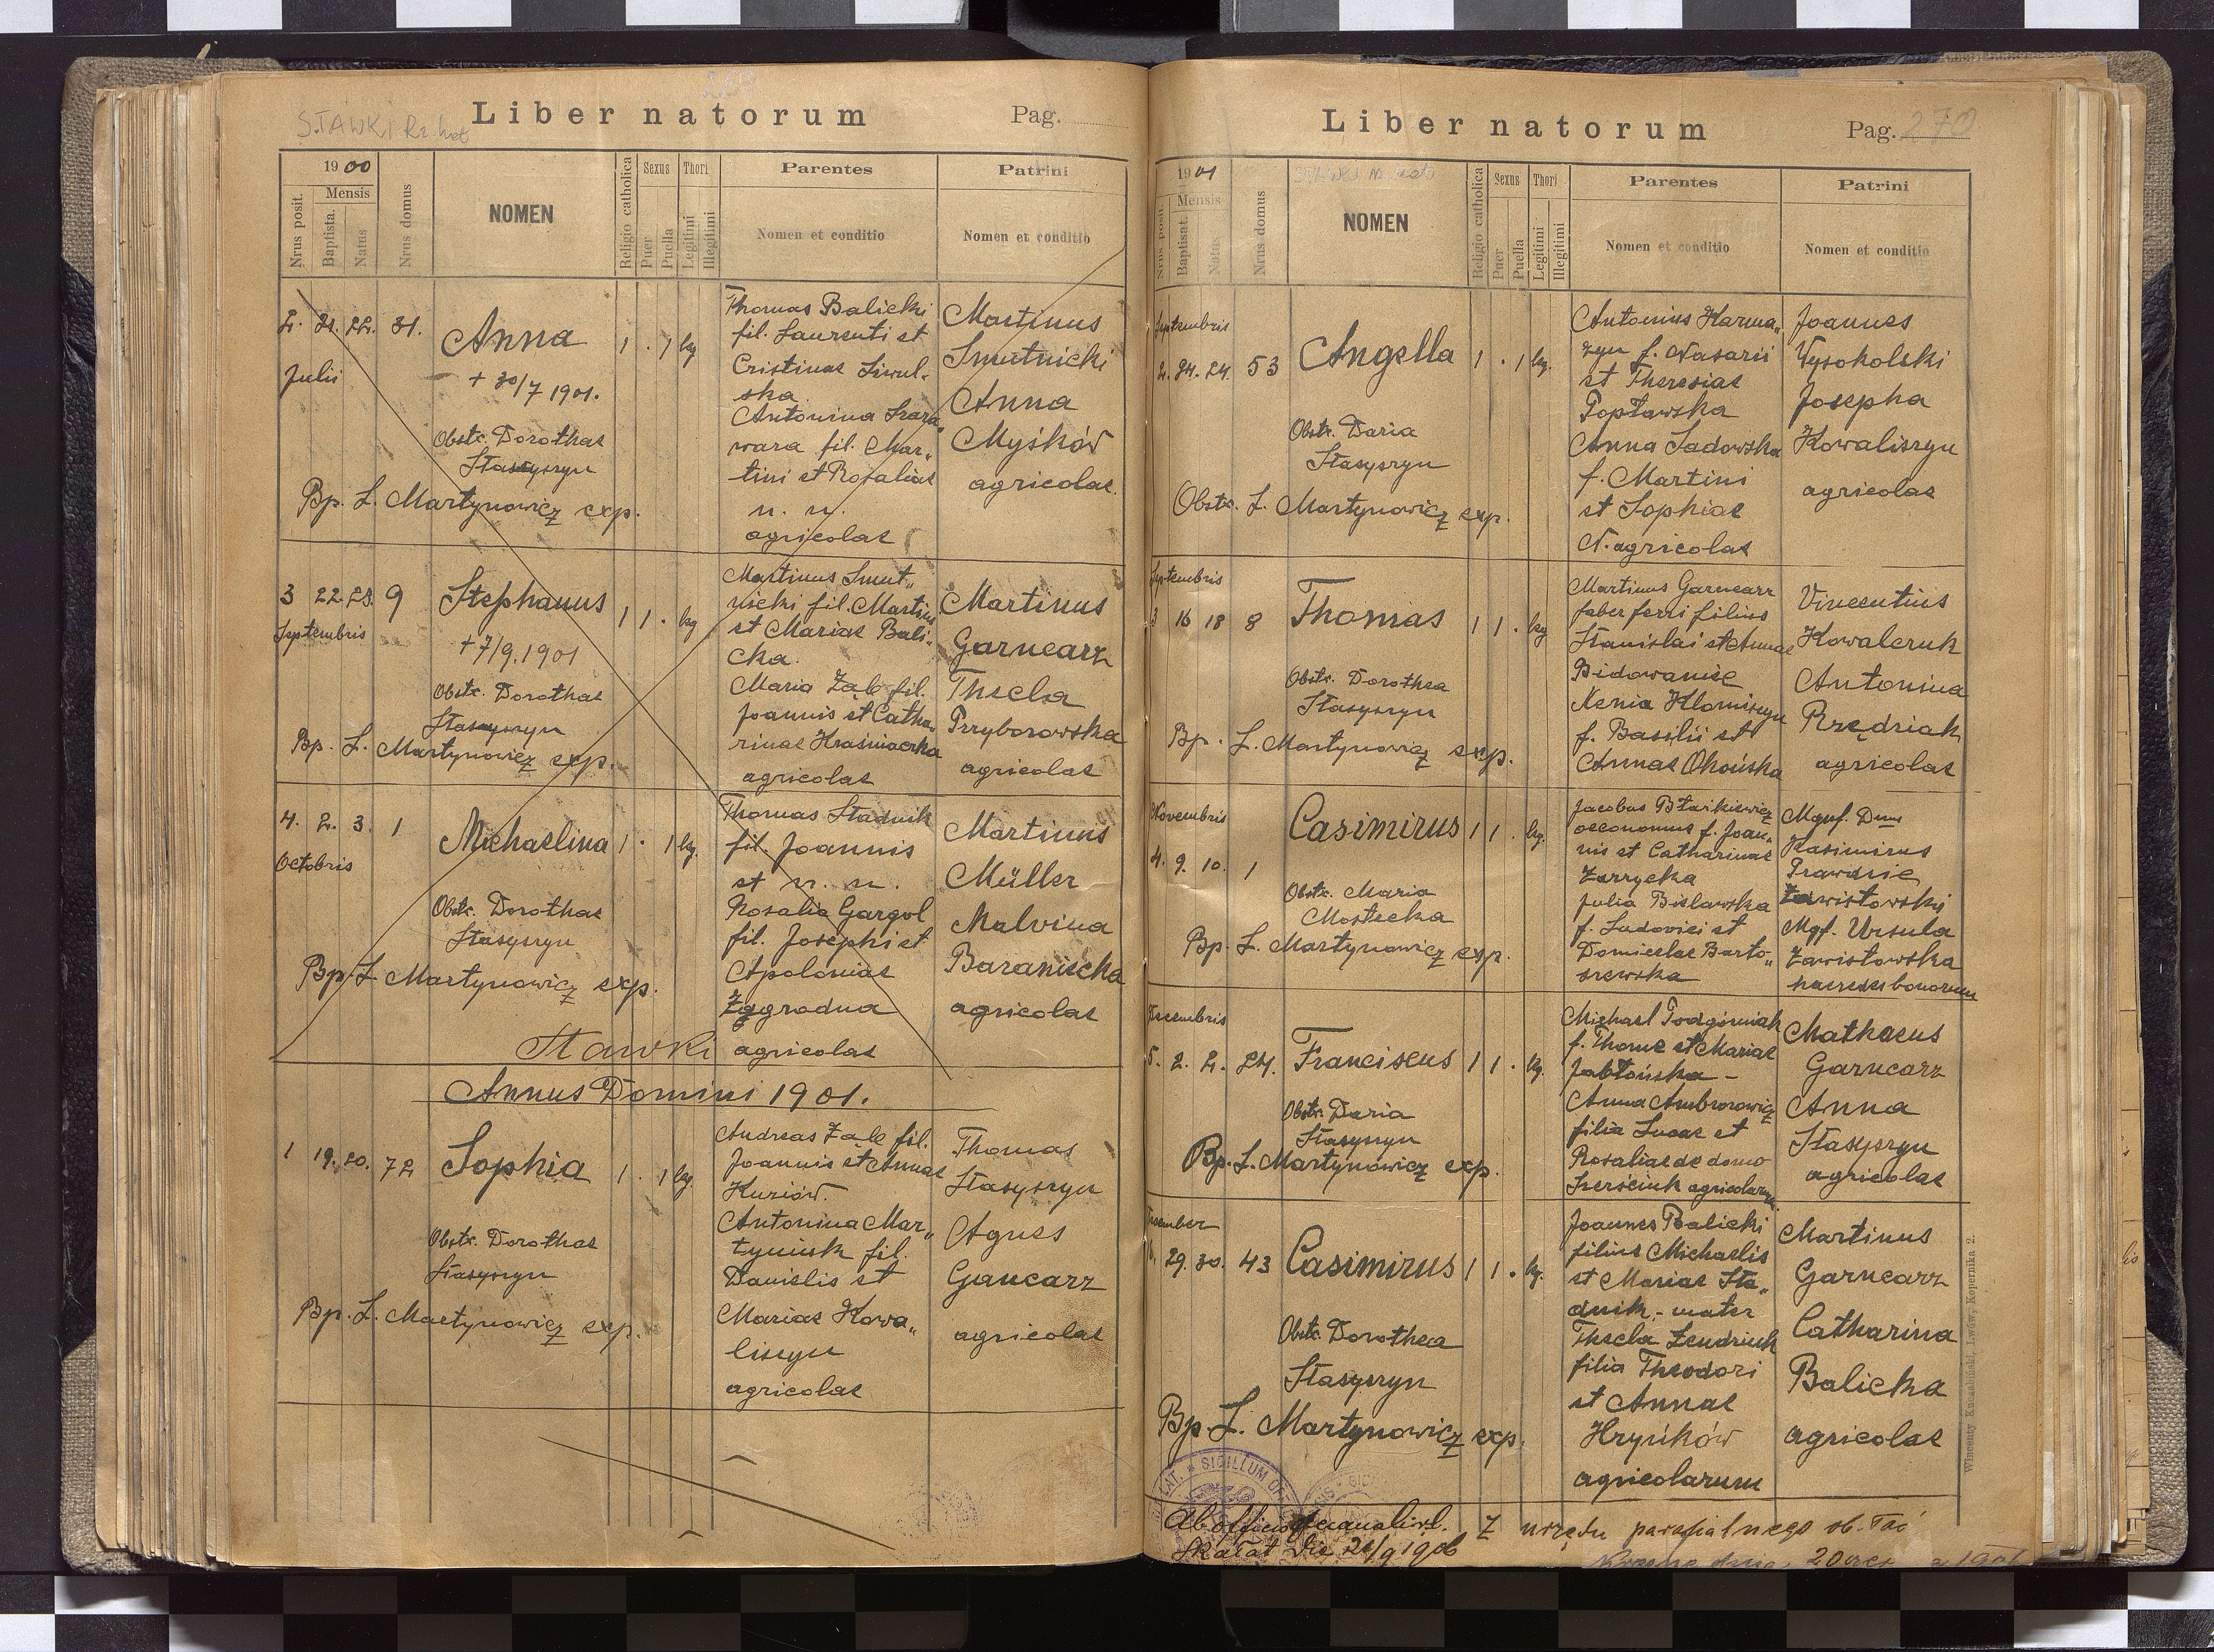 STAWKI
Liber natorum
Pag.
1900
Nrus posit.
Mensis
Baptista.
Natus
Nrus domus
NOMEN
Religio catholica
Sexus
Puer
Puella
Thori
Legitimi
Illegitimi
Parentes
Nomen et conditio
Patrini
Nomen et conditio
2. 21. 22. 31.
Julii
Anna
1 . 1 leg
+ 30/7 1901.
Obstr. Dorothae
Stasyszyn
Bp. L. Martynowicz exp.
Thomas Balicki
fil. Laurenti et
Cristinae
ska
Antonina
wara fil. Mar„
tini et Rosaliae
n. n.
agricolae
Martinus
Smutnicki
Anna
Myśków
agricolae.
3 22. 23. 9
Septembris
Stephanus
1 1 . leg
+ 7/9. 1901
Obstr. Dorothae
Stasyszyn
Bp. L. Martynowicz exp.
Martinus Smut„
nicki fil. Martini
et Mariae Bali„
cka.
Maria Ząb fil.
Joannis et Catha„
rinae
agricolae
Martinus
Garncarz
Thecla
Przyborowska
agricolae
4. 2. 3. 1
Octobris
Michaelina
1 . 1 leg.
Obstr. Dorothae
Stasyszyn
Bp. L. Martynowicz exp.
Thomas Stadnik
fil. Joannis
et n. n.
Rosalia Gargol
fil. Josephi et
Apoloniae
Zagrodna
agricolae
Martinus
Müller
Malvina
Baraniecka
agricolae
Stawki
Annus Domini 1901.
1 19. 20. 72
Sophia
1 . 1 leg.
Obstr. Dorothae
Stasyszyn
Bp. L. Martynowicz exp.
Andreas Ząb fil.
Joannis et Annae
Kuziów.
Antonina Mar„
tyniuk fil.
Danielis et
Mariae Kowa„
liszyn
agricolae
Thomas
Stasyszyn
Agnes
Gancarz
agricolae
Liber natorum
Pag. 270
1901
Nrus posit.
Mensis
Baptisat.
Natus
Nrus domus
NOMEN
Religio catholica
Sexus
Puer
Puella
Thori
Legitimi
Illegitimi
Parentes
Nomen et conditio
Patrini
Nomen et conditio
Septembris
2. 24. 24. 53
Angella
1 . 1 leg.
Obstr. Daria
Stasyszyn
Obstr. L. Martynowicz exp.
Antonius Karma„
zyn f. Nasarii
et Theresiae
Popławska
Anna Sadowska
f. Martini
et Sophiae
N. agricolae
Joannes
Wysokolski
Josepha
Kowaliszyn
agricolae
Septembris
3 16 18 8
Thomas
1 1 . leg
Obstr. Dorothea
Stasyszyn
Bp. L. Martynowicz exp.
Martinus Garncarz
faber ferri filius
Stanislai et Annae
Bidowaniec
Xenia
f. Basilii et
Annae Ohońska
Vincentius
Kowalczuk
Antonina
Rzędziak
agricolae
Novembris
4. 9. 10. 1
Casimirus
1 1 . leg.
Obstr. Maria
Mostecka
Bp. L. Martynowicz exp.
Jacobus
oeconomus f. Joan„
nis et Catharinae
Zarzycka
Julia Bielawska
f. Ludovici et
Domicelae Barto„
szewska
Mgnf. Dnus
Kasimirus
Prawdzic
Zawistowski
Mgf. Ursula
Zawistowska
haeredes bonorum
Decembris
5. 2. 2. 24.
Franciscus
1 1 . leg.
Obstr. Daria
Stasyszyn
Bp. L. Martynowicz exp.
Michael Podgórniak
f. Thomae et Mariae
Jabłońska -
Anna Ambrozowicz
filia Lucae et
Rosaliae de domo
agricolarum
Mathaeus
Garncarz
Anna
Stasyszyn
agricolae
December
6. 29. 30. 43
Casimirus
1 1 . leg.
Obstr. Dorothea
Stasyszyn
Bp. L. Martynowicz exp.
Joannes Balicki
filius Michaelis
et Mariae Sta„
dnik, - mater
Thecla
filia Theodori
et Annae
Hryńków
agricolarum
Martinus
Garncarz
Catharina
Balicka
agricolae
Wincenty Kuczabiński, Lwów, Kopernika 2.
SIGILLUM
Ab officio decanali r.l.
Skałat die 20/9 1906
Z urzędu parafialnego ob. łać